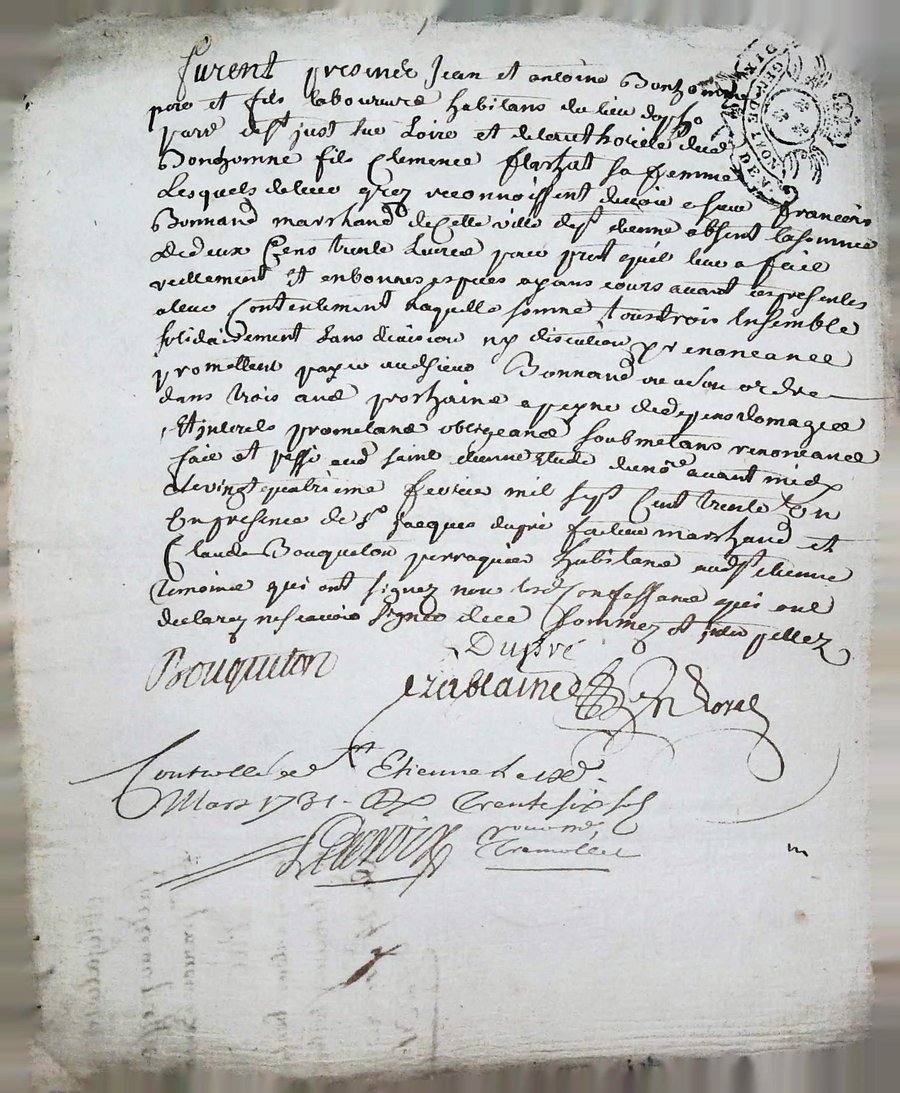 furent presents Jean et antoine Bonhomme
pere et fils laboureurs habitans du lieu
parr de st just sur Loire et de lauthorité dud
Bonhomme fils Clemence flachat sa femme
Lesquels de leur grez reconnoissent devoir a sieur francois
Bonnand marchand de cette ville de st etienne absent la somme
de deux Cens trente Livres pour pret quil leur a fait
reellement et en bonnes especes ayans cours avant ces presentes
a leur Contentement laquelle somme tous trois Ensemble
solidairement sans division ny discution y renoncance
promettent payer aud sieur Bonnand ou a son ordre
dans trois ans prochains a peyne de depens domages
Et interets promettans obligeans soubmetans renoncance
fait et passé aud saint etienne Etude du nore avant midy
le vingt quatrieme fevrier mil sept Cent trente Un
En presence de sr jacques dupré marchand et
Claude Bouqueton perruquier habitans aud st etienne
temoins qui ont signez non lesd Confessans qui ont
declarez ne scavoir signer de ce sommez et interpellez
Dupré
Bouqueton
Controllé a St Etienne le
Mars 1731 - Rx Trente six sols